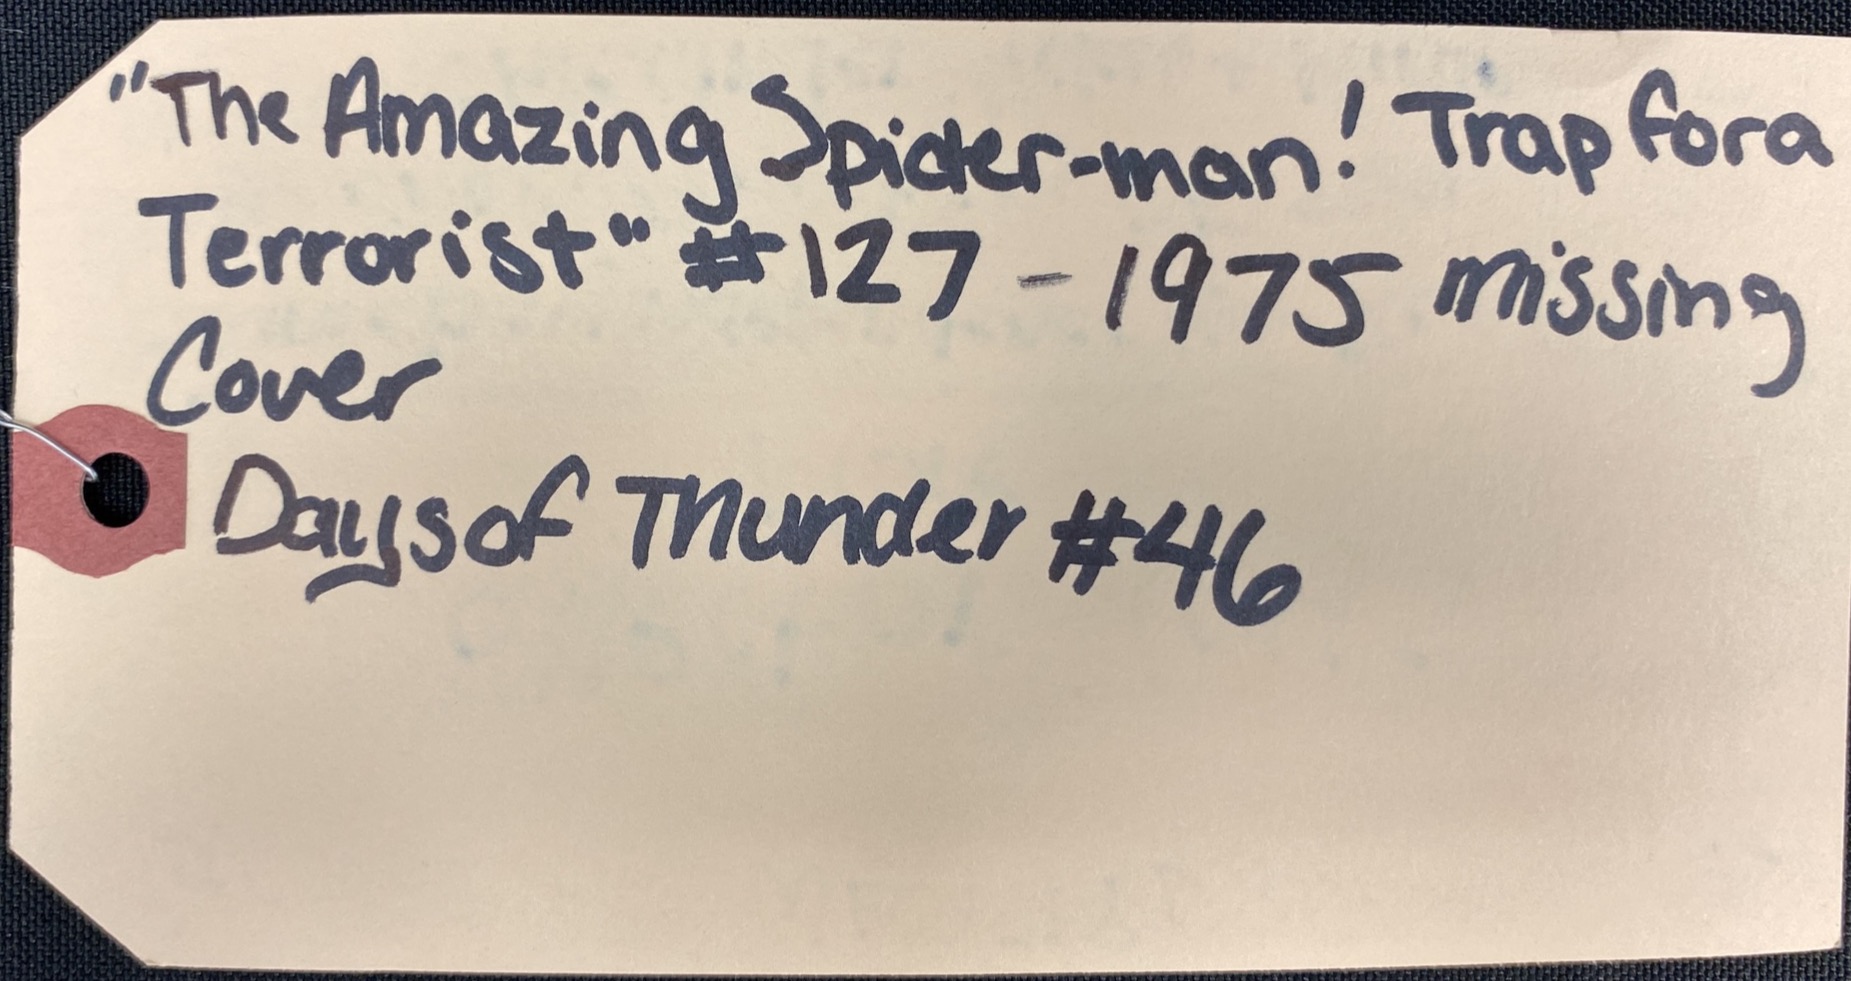 "The Amazing Spider-man! Trap for a
Terrorist" #127 - 1975 missing
Cover
Days of Thunder #46